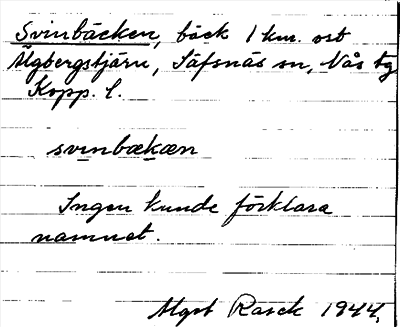 Svinbäcken, bäck 1 km. ost
Älgbergstjärn, Säfsnäs sn, Nås tg
Kopp. l.
svinbækæn
Ingen kunde förklara
namnet.
Mgt Rasck 1944.